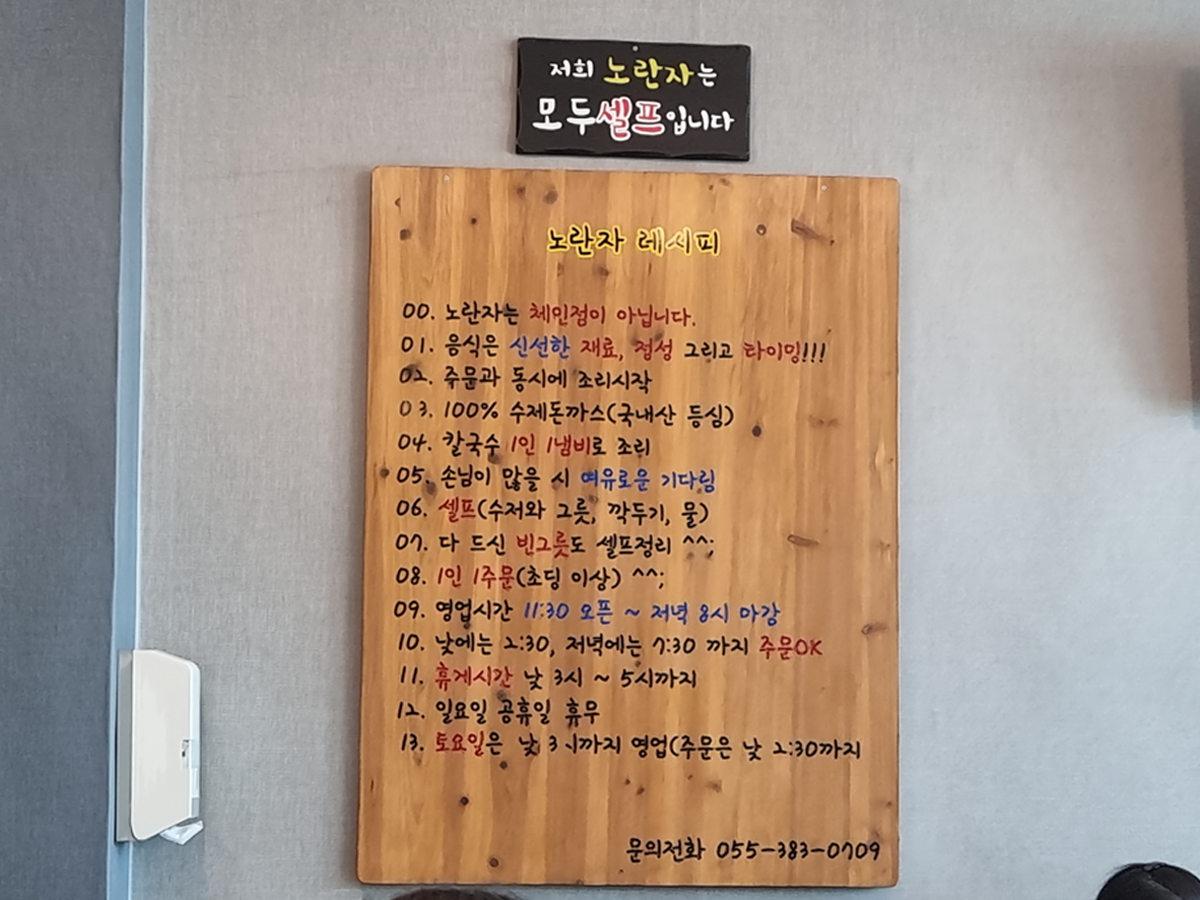 저희 노란자는
모두셀프입니다
노란자 레시피
00. 노란자는 체인점이 아닙니다.
01. 음식은 신선한 재료, 정성 그리고 타이밍!!!
02. 주문과 동시에 조리시작
03. 100% 수제돈까스(국내산 등심)
04. 칼국수 1인 1냄비로 조리
05. 손님이 많을 시 여유로운 기다림
06. 셀프(수저와 그릇, 깍두기, 물)
07. 다 드신 빈그릇도 셀프정리 ^^;
08. 1인 1주문(초딩 이상) ^^;
09. 영업시간 11:30 오픈 ~ 저녁 8시 마감
10. 낮에는 2:30, 저녁에는 7:30 까지 주문OK
11. 휴게시간 낮 3시 ~ 5시까지
12. 일요일 공휴일 휴무
13. 토요일은 낮 3시까지 영업(주문은 낮 2:30까지
문의전화 055-383-0709